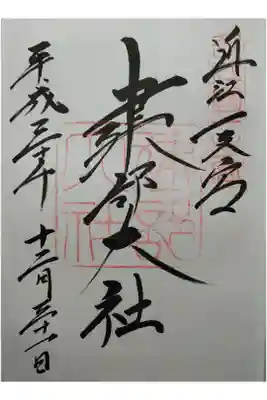 近江一之宮
建部大社
平成三十年 十二月三十一日